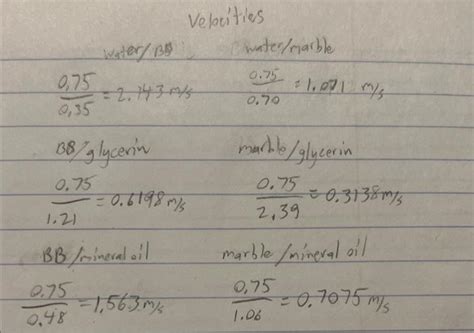 Velocities
water/BB water/marble
0.75/0.35 = 2.143 m/s 0.75/0.70 = 1.071 m/s
BB/glycerin marble/glycerin
0.75/1.21 = 0.6198 m/s 0.75/2.39 = 0.3138 m/s
BB/mineral oil marble/mineral oil
0.75/0.48 = 1.563 m/s 0.75/1.06 = 0.7075 m/s